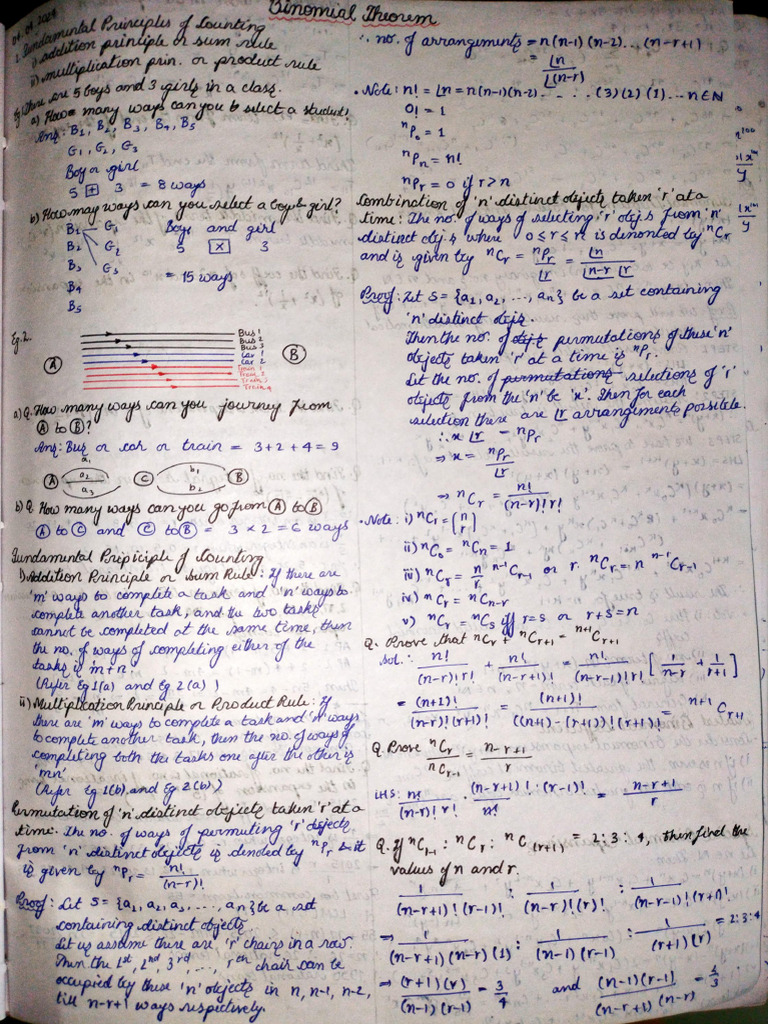 Binomial Theorem
04.04.2024
1. Fundamental Principles of Counting
i) addition principle or sum rule
ii) multiplication prin. or product rule
Eg) There are 5 boys and 3 girls in a class.
a) How many ways can you select a student?
Ans: B₁, B₂, B₃, B₄, B₅
G₁, G₂, G₃
Boy or girl
5 + 3 = 8 ways
b) How may ways can you select a boy & girl?
B₁ G₁ Boys and girl
B₂ G₂ 5 × 3
B₃ G₃ = 15 ways
B₄
B₅
Eg.2.
Bus 1
Bus 2
Bus 3
Car 1
Car 2
Train 1
Train 2
Train 3
Train 4
A B
a) Q. How many ways can you journey from
A to B?
Ans: Bus or car or train = 3+2+4 = 9
a₁ b₁
A a₂ C B
a₃ b₂
b) Q. How many ways can you go from A to B
A to C and C to B = 3 × 2 = 6 ways
Fundamental Pripiciple of Counting
i) Addition Principle or Sum Rule: If there are
'm' ways to complete a task and 'n' ways to
complete another task, and the two tasks
cannot be completed at the same time, then
the no. of ways of completing either of the
tasks is m+n.
(Refer Eg 1(a) and Eg 2(a))
ii) Multiplication Principle or Product Rule: If
there are 'm' ways to complete a task and 'n' ways
to complete another task, then the no. of ways of
completing both the tasks one after the other is
'mn'
(Refer Eg 1(b) and Eg 2(b))
Permutation of 'n' distinct objects taken 'r' at a
time: The no. of ways of permuting 'r' objects
from 'n' distinct objects is denoted by ⁿPᵣ & it
is given by ⁿPᵣ = n!/(n-r)!
Proof: Let S = {a₁, a₂, a₃, ..., aₙ} be a set
containing distinct objects
Let us assume there are 'r' chairs in a row.
Then the 1st, 2nd, 3rd, ..., rth chair can be
occupied by these 'n' objects in n, n-1, n-2,
till n-r+1 ways respectively.
∴ no. of arrangements = n(n-1)(n-2)...(n-r+1)
= ⌊n/⌊(n-r)
• Note: n! = ⌊n = n(n-1)(n-2)....(3)(2)(1)... n∈N
0! = 1
ⁿP₀ = 1
ⁿPₙ = n!
ⁿPᵣ = 0 if r>n
Combination of 'n' distinct objects taken 'r' at a
time: The no. of ways of selecting 'r' obj.s from 'n'
distinct obj.s where 0≤r≤n is denonted by ⁿCᵣ
and is given by ⁿCᵣ = ⁿPᵣ/⌊r = ⌊n/(⌊n-r ⌊r)
Proof: Let S = {a₁, a₂, ..., aₙ} be a set containing
'n' distinct objs.
Then the no. of objs permutations of these 'n'
objects taken 'r' at a time is ⁿPᵣ.
Let the no. of permutations selections of 'r'
objects from the 'n' be 'x'. Then for each
selection there are ⌊r arrangements possible.
∴ x ⌊r = ⁿPᵣ
⇒ x = ⁿPᵣ/⌊r
⇒ ⁿCᵣ = n!/(n-r)! r!
• Note: i) ⁿCᵣ = (n r)
ii) ⁿC₀ = ⁿCₙ = 1
iii) ⁿCᵣ = n/r ⁿ⁻¹Cᵣ₋₁ or r. ⁿCᵣ = n ⁿ⁻¹Cᵣ₋₁
iv) ⁿCᵣ = ⁿCₙ₋ᵣ
v) ⁿCᵣ = ⁿCₛ iff r=s or r+s=n
Q. Prove that ⁿCᵣ + ⁿCᵣ₊₁ = ⁿ⁺¹Cᵣ₊₁
Sol: n!/(n-r)! r! + n!/(n-r+1)! = n!/(n-r-1)! r! [1/(n-r) + 1/(r+1)]
= (n+1)!/(n-r)!(r+1)! = (n+1)!/((n+1)-(r+1))!(r+1)! = ⁿ⁺¹Cᵣ₊₁
Q. Prove ⁿCᵣ/ⁿCᵣ₋₁ = (n-r+1)/r
LHS: n!/(n-r)! r! · (n-r+1)! · (r-1)!/n! = (n-r+1)/r
Q. If ⁿCᵣ₋₁ : ⁿCᵣ : ⁿC₍ᵣ₊₁₎ = 2:3:4, then find the
values of n and r.
1/(n-r+1)!(r-1)! : 1/(n-r)!(r)! : 1/(n-r-1)!(r+1)!
⇒ 1/(n-r+1)(n-r)(1) : 1/(n-1)(r-1) : 1/(r+1)(r) = 2:3:4
⇒ (r+1)(r)/(n-1)(r-1) = 3/4 and (n-1)(r-1)/(n-r+1)(n-r) = 2/3